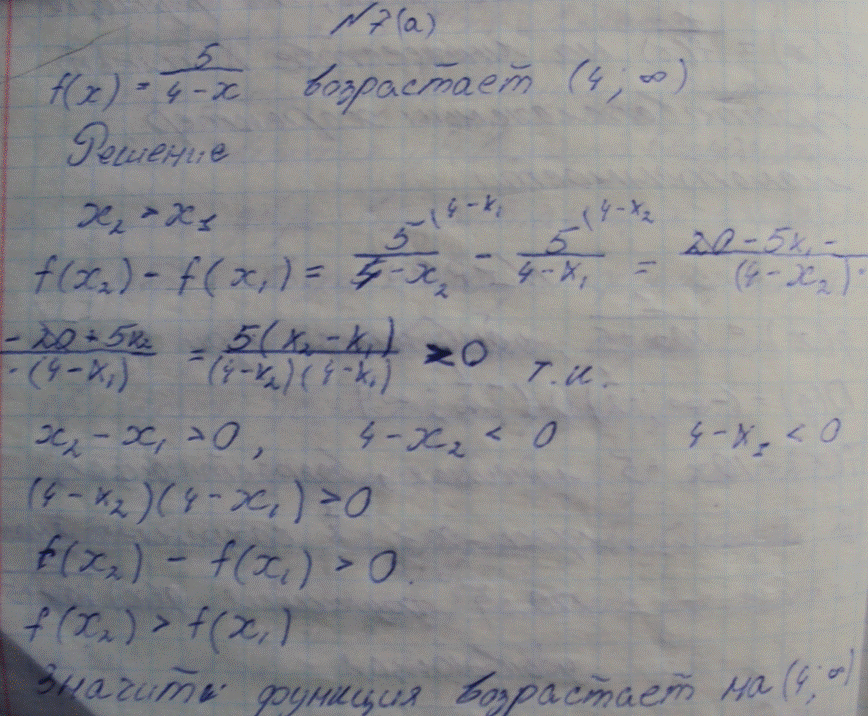 №7(а)
f(x) = 5/(4-x) возрастает (4; ∞)
Решение
x₂ > x₁
f(x₂) - f(x₁) = 5/(4-x₂) (4-x₁ - 5/(4-x₁) (4-x₂ = 20-5x₁- / (4-x₂)·
-20+5x₂ / ·(4-x₁) = 5(x₂-x₁) / (4-x₂)(4-x₁) >0 т.к.
x₂-x₁ >0, 4-x₂ < 0 4-x₁ < 0
(4-x₂)(4-x₁) >0
f(x₂) - f(x₁) > 0.
f(x₂) > f(x₁)
Значить функция возрастает на (4; ∞)